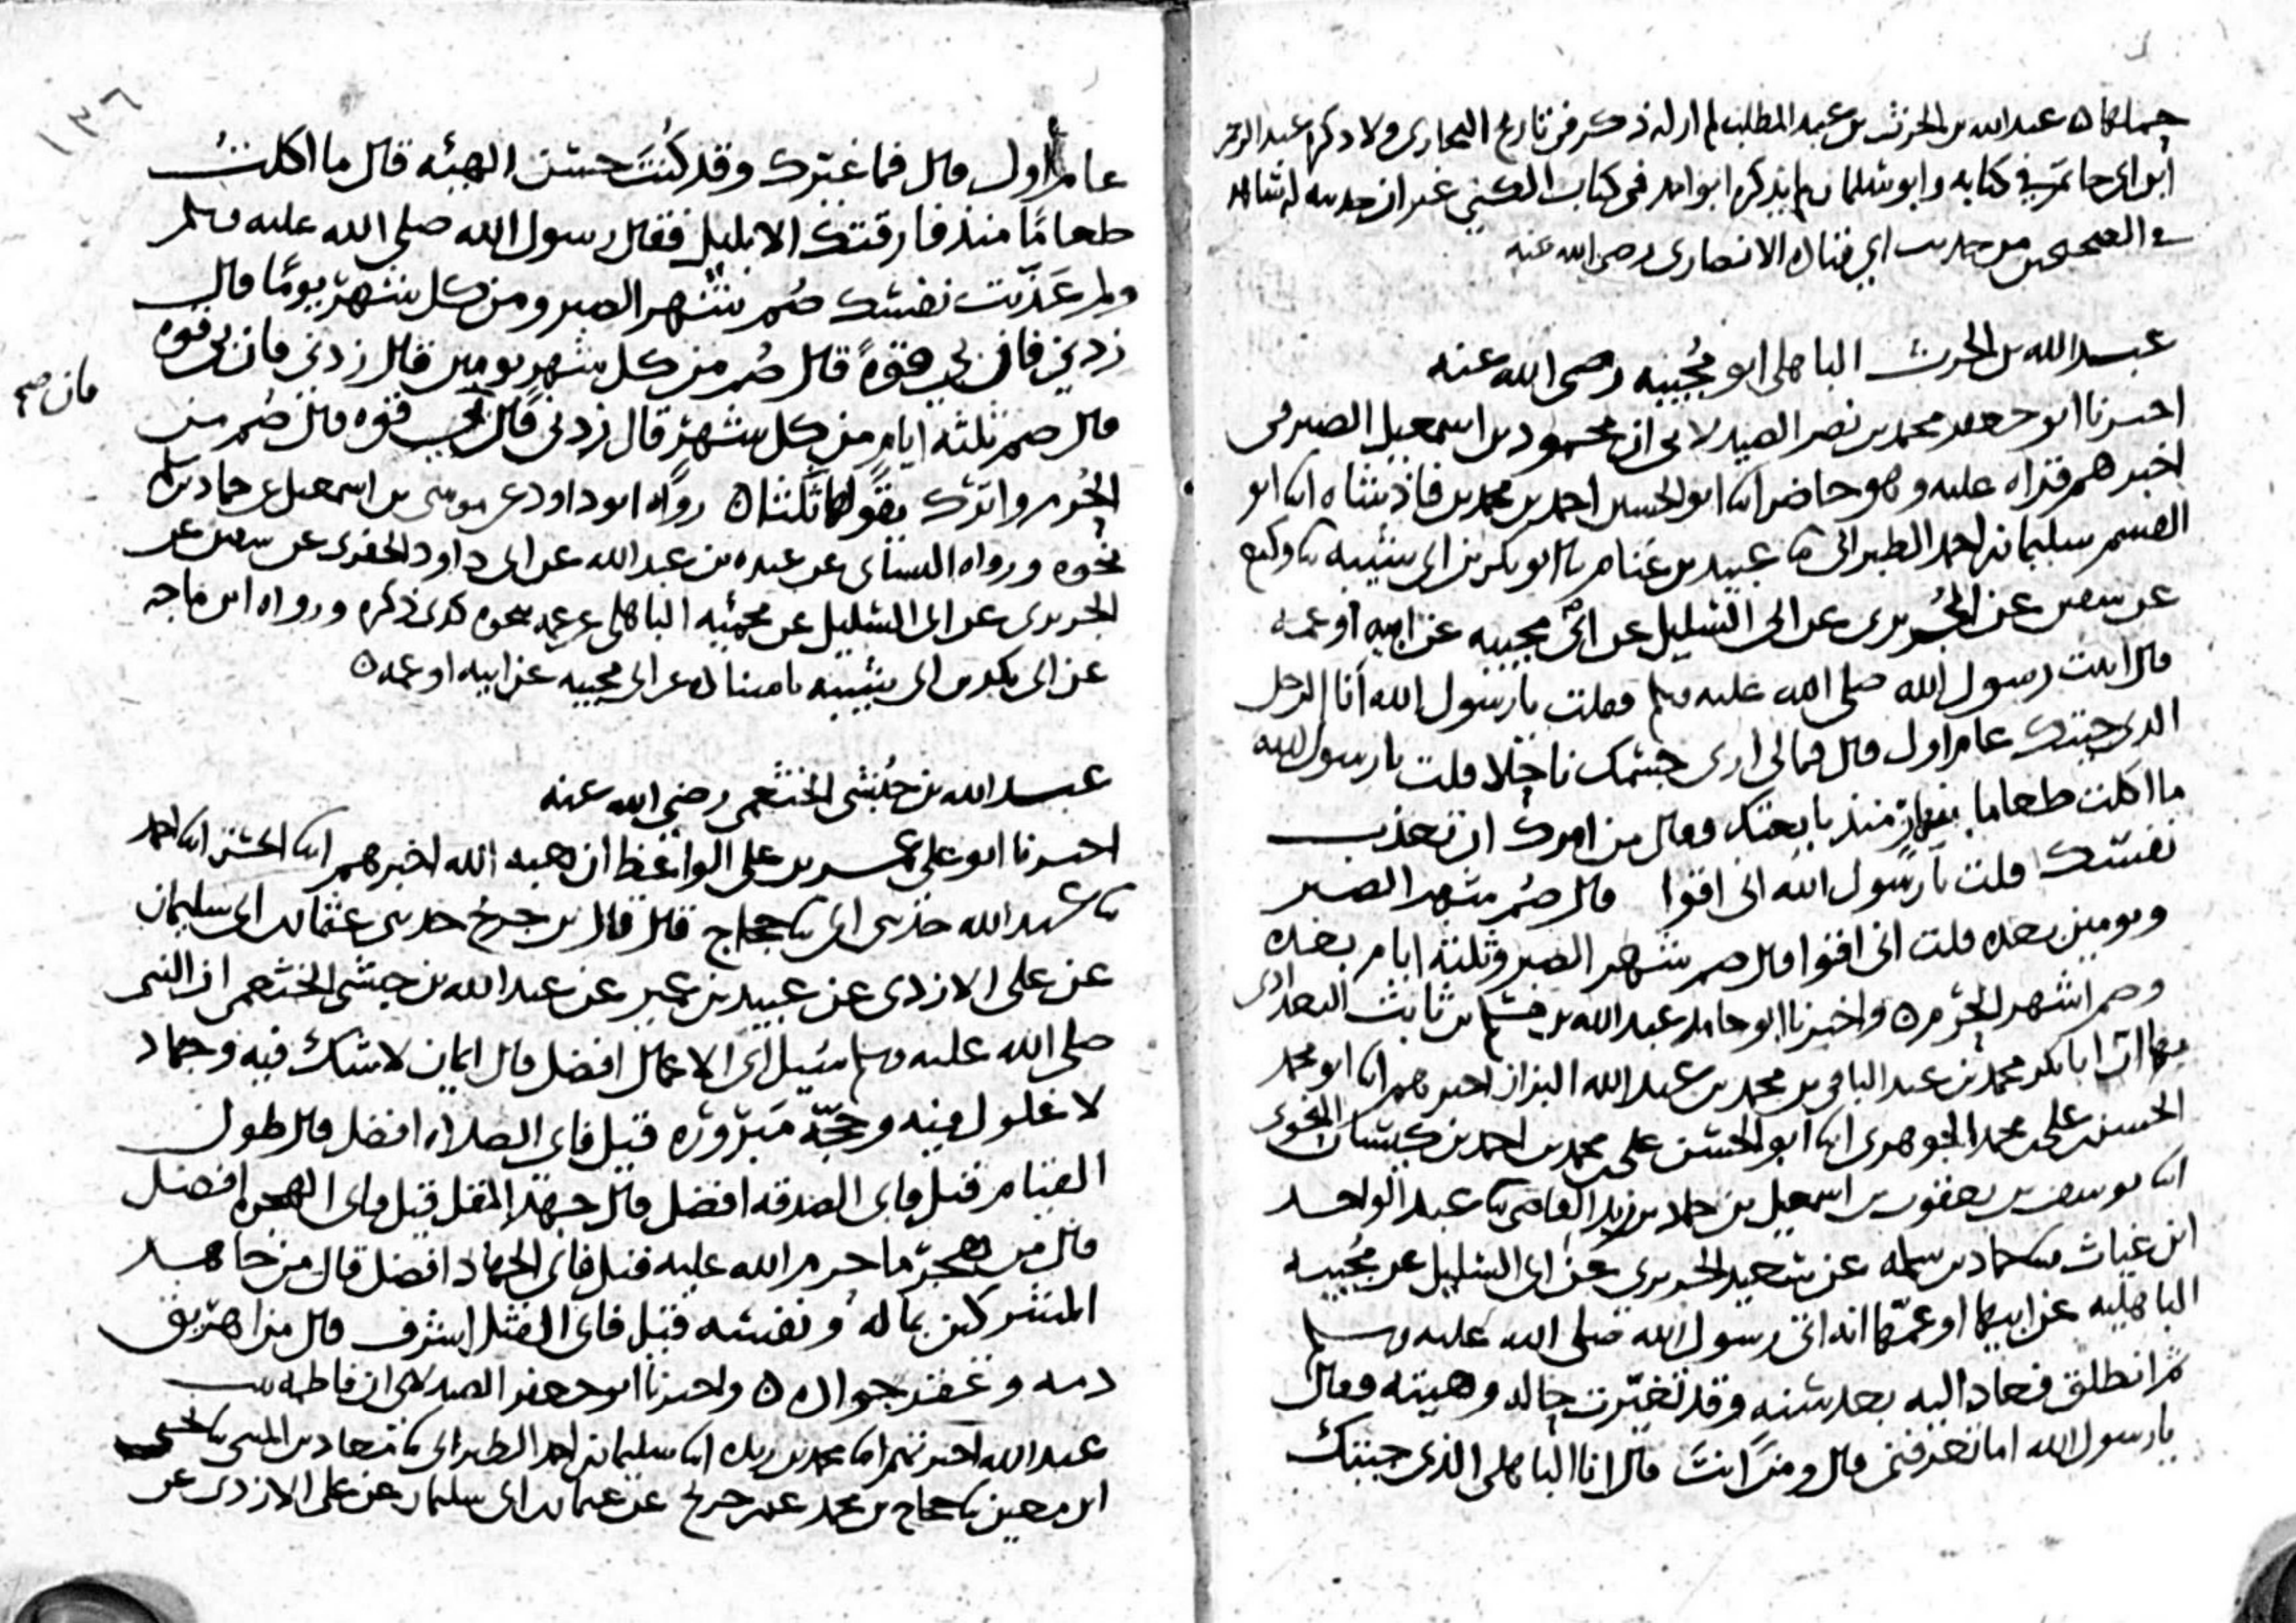 حملها ه عبد الله بن الحرث بن عبد المطلب لم ار له ذكر في تاريخ البخاري ولا ذكره عبد الرحمن
ابن ابي حاتم في كتابه وابو سليمان لم يذكره ابو احمد في كتاب الكنى غير ان حديثه له شاهد
في الصحيحين من حديث ابي قتادة الانصاري رضي الله عنه
عبد الله بن الحرث الباهلي ابو مُجيبه رضي الله عنه
اخبرنا ابو جعفر محمد بن نصر الصيدلاني ان محمود بن اسمعيل الصيرفي
اخبرهم قراه عليه وهو حاضر ابنا ابو الحسين احمد بن محمد بن فاذشاه ابنا ابو
القسم سليمان بن احمد الطبراني ثنا عبيد بن غنام ثنا ابو بكر بن ابي شيبه ثنا وكيع
عن سفين عن الجُريري عن ابي السليل عن ابي مجيبه عن ابيه او عمه
قال اتيت رسول الله صلى الله عليه وسلم فقلت يا رسول الله أنا الرجل
الذي جيتك عام اول قال فما لي ارى جسمك ناحلا قلت يا رسول الله
ما اكلت طعاما بنهار منذ بايعتك فقال من امرك ان تعذب
نفسك قلت يا رسول الله اني اقوا قال صُم شهر الصبر
ويومين بعده قلت اني اقوا قال صم شهر الصبر وثلثه ايام بعده
وصم اشهر الحُرم ه واخبرنا ابو حامد عبد الله بن مسلم بن ثابت البغدادي
بها ان ابا بكر محمد بن عبد الباقي بن محمد بن عبد الله البزاز اخبرهم ابنا ابو محمد
الحسن بن علي بن محمد الجوهري ابنا ابو الحسن علي بن محمد بن احمد بن كيسان النحوي
ابنا يوسف بن يعقوب بن اسمعيل بن حماد بن زيد القاضي ثنا عبد الواحد
ابن غياث ثنا حماد بن سلمه عن سعيد الجريري عن ابي السليل عن مُجيبه
الباهليه عن ابيها او عمّها انه اتى رسول الله صلى الله عليه وسلم
ثم انطلق فعاد اليه بعد سنه وقد تغيّرت حاله وهيته فقال
يا رسول الله اما تعرفني قال ومَن انتَ قال انا الباهلي الذي جيتك
١٣٦
عام اول قال فما غيّرك وقد كُنتَ حسن الهيئه قال ما اكلتُ
طعامًا منذ فارقتك الا بليل فقال رسول الله صلى الله عليه وسلم
ولم عَذّبت نفسك صُم شهر الصبر ومن كل شهر يومًا قال
زدني فان بي قوةً قال صُم من كل شهر يومين قال زدني فان بي قوه
قال صم ثلثه ايام من كل شهر قال زدني قال بي قوه قال صُم من
فان صح
الحُرم واترك يقولها ثلثا ه رواه ابو داود عن موسى بن اسمعيل عن حماد بن سلمه
نحوه ورواه النسائي عن عبده بن عبد الله عن ابي داود الحفري عن سفين عن
الجريري عن ابي السليل عن مجيبه الباهلي عن عمه نحوه كذى ذكره ورواه ابن ماجه
عن ابي بكر بن ابي شيبه عن ابي مجيبه عن ابيه او عمه ه
عبد الله بن حُبشي الخثعمي رضي الله عنه
اخبرنا ابو علي عمر بن علي الواعظ ان هبه الله اخبرهم ابنا الحسن ابنا احمد
ثنا عبد الله حدثني ابي ثنا حجاج قال قال بن جريج حدثني عثمان بن ابي سليمان
عن علي الازدي عن عبيد بن عمير عن عبد الله بن حبشي الخثعمي ان النبي
صلى الله عليه وسلم سُيل اي الاعمال افضل قال ايمان لا شك فيه وجهاد
لا غلول فيه وحجّة مَبْرورَه قيل فاي الصلاه افضل قال طول
القيام قيل فاي الصدقه افضل قال جهد المقل قيل فاي الهجره افضل
قال من هجر ما حرم الله عليه قيل فاي الجهاد افضل قال من جاهد
المشركين بماله ونفسه قيل فاي القتل اشرف قال من اهريق
دمه وعُقر جواده ه واخبرنا ابو جعفر الصيدلاني ان فاطمه بنت
عبد الله اخبرتهم ابنا محمد بن ريذه ابنا سليمان بن احمد الطبراني ثنا معاذ بن المثنى ثنا يحيى
ابن معين ثنا حجاج بن محمد عن بن جريج عن عثمان بن ابي سليمان عن علي الازدي عن